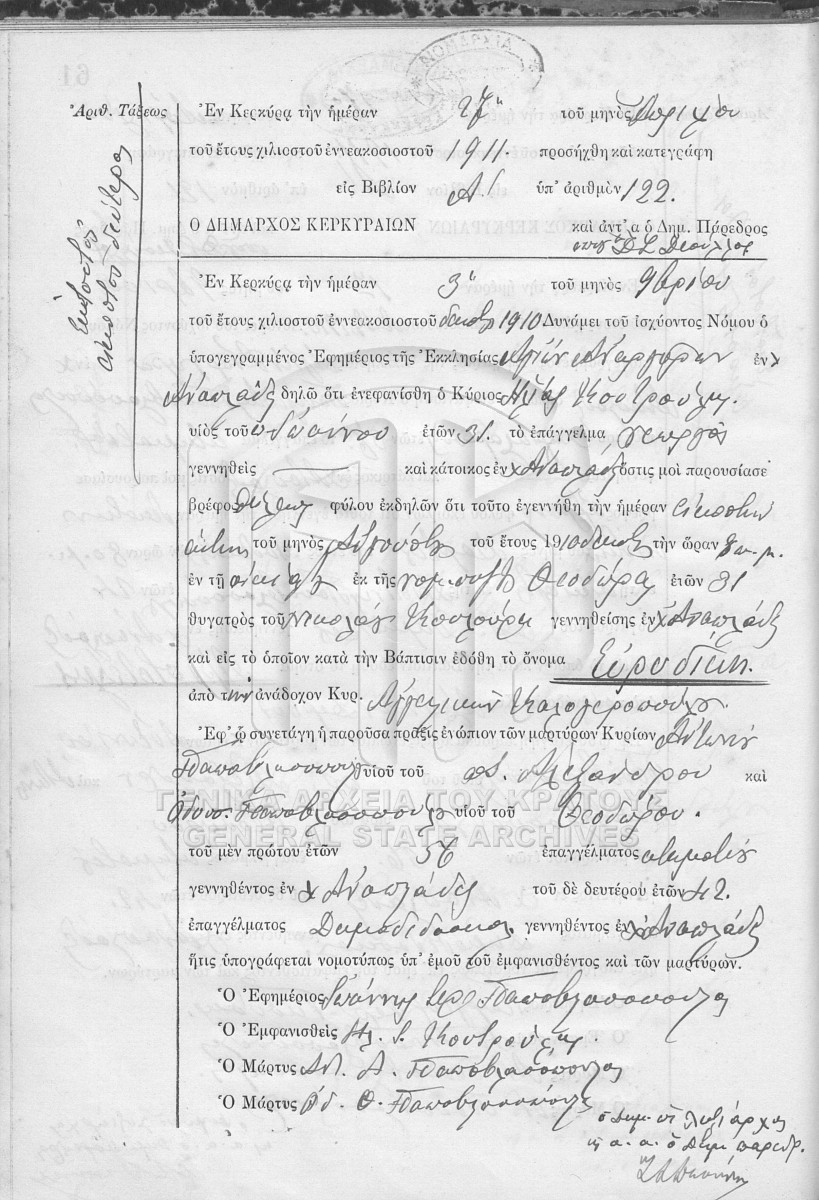 ΝΟΜΑΡΧΙΑ
Ἀριθ. Τάξεως
Ἑκατοστὸς εἰκοστὸς δεύτερος
Ἐν Κερκύρᾳ τὴν ἡμέραν 27 τοῦ μηνὸς Ἀπριλίου
τοῦ ἔτους χιλιοστοῦ ἐννεακοσιοστοῦ 1911. προσήχθη καὶ κατεγράφη
εἰς Βιβλίον Α ὑπ' ἀριθμὸν 122.
Ο ΔΗΜΑΡΧΟΣ ΚΕΡΚΥΡΑΙΩΝ καὶ ἀντ' α ὁ Δημ. Πάρεδρος
Ἐν Κερκύρᾳ τὴν ἡμέραν 3 τοῦ μηνὸς 9βρίου
τοῦ ἔτους χιλιοστοῦ ἐννεακοσιοστοῦ δεκάτου 1910 Δυνάμει τοῦ ἰσχύοντος Νόμου ὁ
ὑπογεγραμμένος Ἐφημέριος τῆς Ἐκκλησίας Ἁγίων Ἀναργύρων ἐν χ
Ἀναπλάδες δηλῶ ὅτι ἐνεφανίσθη ὁ Κύριος Ἠλίας Κουτρούλης.
υἱὸς τοῦ Ἰωάννου ἐτῶν 31. τὸ ἐπάγγελμα γεωργὸς
γεννηθεὶς — καὶ κάτοικος ἐν χ Ἀναπλάδες ὅστις μοὶ παρουσίασε
βρέφος θήλεος φύλου ἐκδηλῶν ὅτι τοῦτο ἐγεννήθη τὴν ἡμέραν εἰκοστὴν
τοῦ μηνὸς Αὐγούστου τοῦ ἔτους 1910 δεκάτου τὴν ὥραν π.μ.
ἐν τῇ οἰκίᾳ του ἐκ τῆς Θεοδώρα ἐτῶν 31
θυγατρὸς τοῦ Νικολάου γεννηθείσης ἐν χ Ἀναπλάδες
καὶ εἰς τὸ ὁποῖον κατὰ τὴν Βάπτισιν ἐδόθη τὸ ὄνομα Εὐρυδίκη.
ἀπὸ τὴν ἀνάδοχον Κυρ. Ἀγγελικὴν Καλογεροπούλου.
Ἐφ' ᾧ συνετάγη ἡ παροῦσα πρᾶξις ἐνώπιον τῶν μαρτύρων Κυρίων Ἀντωνίου
Παπαβλασοπούλου υἱοῦ τοῦ Ἀλεξάνδρου καὶ
Ὀδυσ. Παπαβλασοπούλου υἱοῦ τοῦ Θεοδώρου.
ΓΕΝΙΚΑ ΑΡΧΕΙΑ ΤΟΥ ΚΡΑΤΟΥΣ
GENERAL STATE ARCHIVES
τοῦ μὲν πρώτου ἐτῶν ἐπαγγέλματος κτηματίου
γεννηθέντος ἐν χ Ἀναπλάδες τοῦ δὲ δευτέρου ἐτῶν 42.
ἐπαγγέλματος Δημοδιδάσκαλ. γεννηθέντος ἐν χ Ἀναπλάδες
ἥτις ὑπογράφεται νομοτύπως ὑπ' ἐμοῦ τοῦ ἐμφανισθέντος καὶ τῶν μαρτύρων.
Ὁ Ἐφημέριος Ἰωάννης Ἱερ. Παπαβλασόπουλος
Ὁ Ἐμφανισθεὶς Ἠλ. Ι. Κουτρούλης.
Ὁ Μάρτυς Ἀντ. Α. Παπαβλασόπουλος
Ὁ Μάρτυς Ὀδ. Θ. Παπαβλασόπουλος
ὁ Δημ. ὡς Ληξίαρχος
κ α. α. ὁ Δημ παρεδρ.